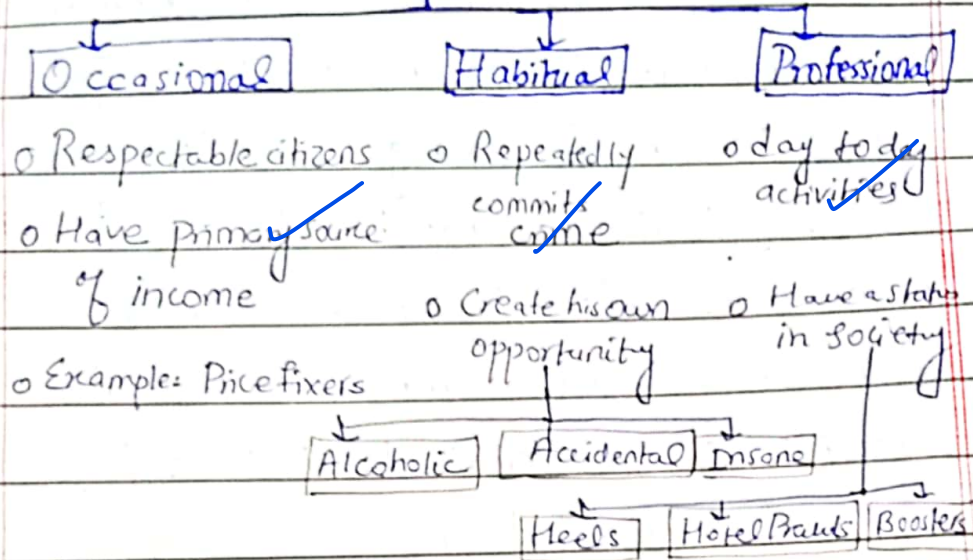 Occasional
Habitual
Professional
o Respectable citizens
o Have primary source
of income
o Example: Price fixers
o Repeatedly
commits
crime
o Create his own
opportunity
o day to day
activities
o Have a status
in society
Alcoholic
Accidental
Insane
Heels
Hotel
Boosters